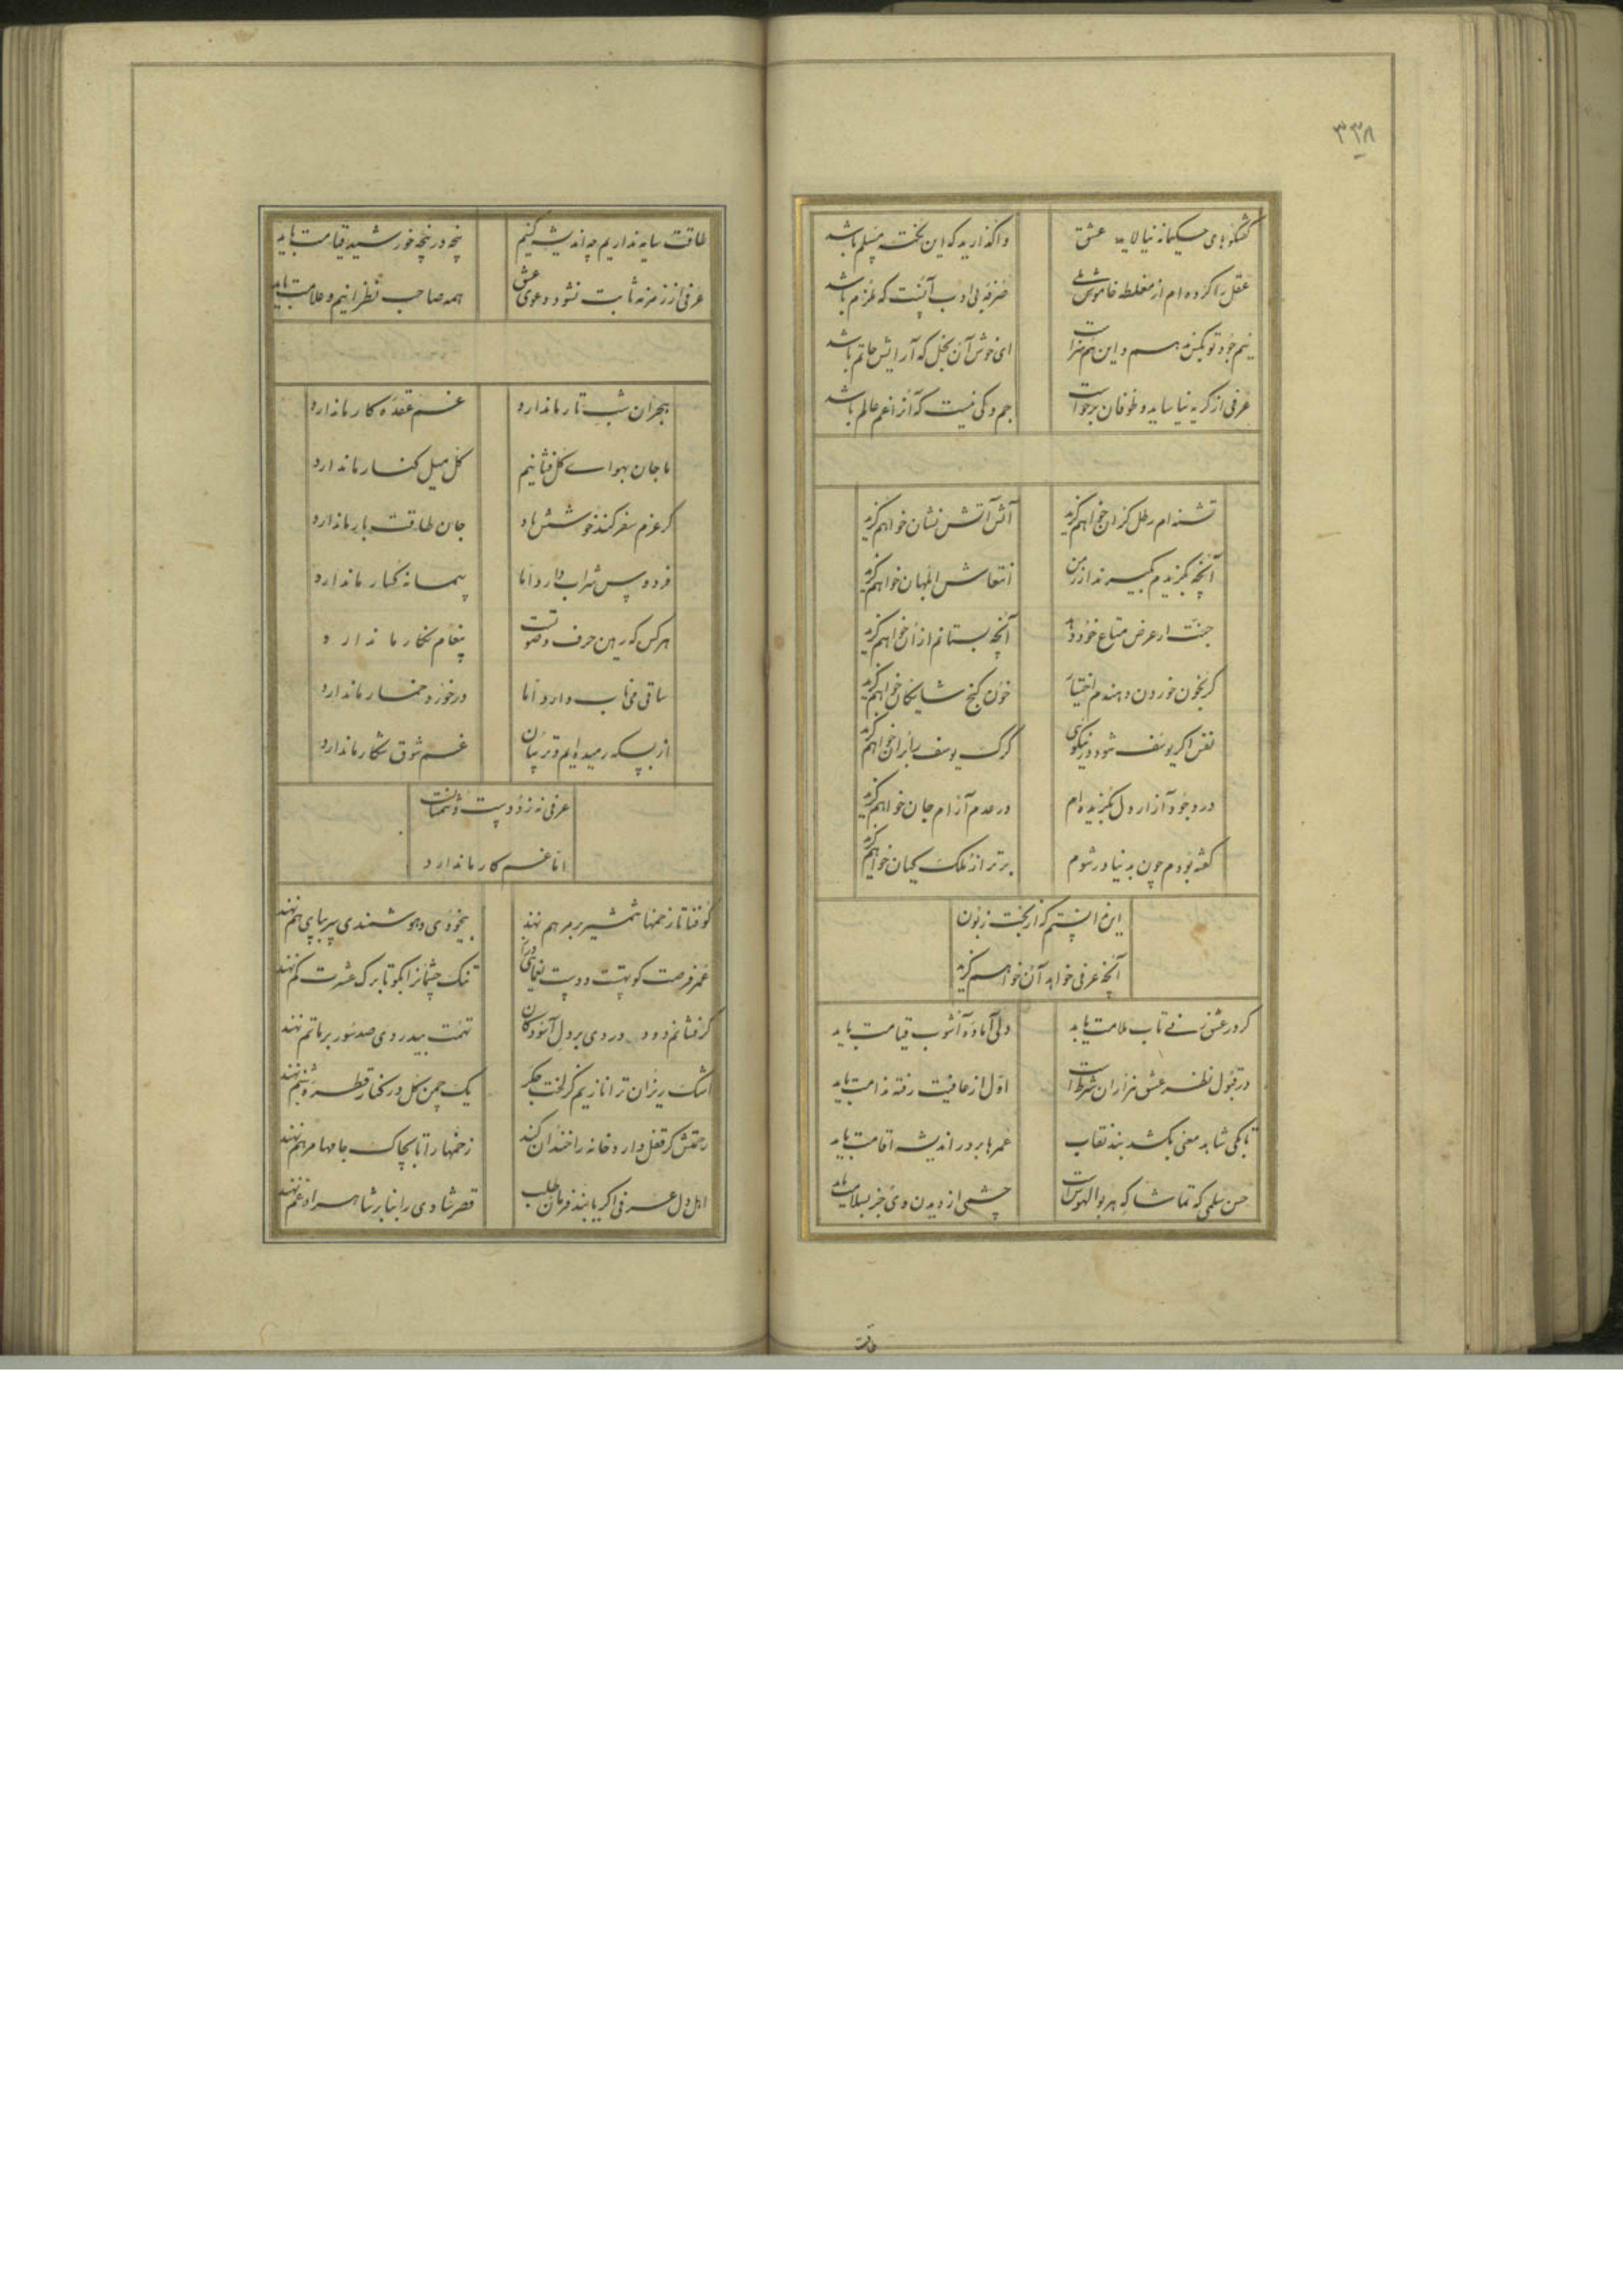 ۳۳۸
گفتگوهای حکیمانه نیالاید عشق واگذارید که این نخت مسلم باشد
عقل را کرده ام از مغلطه خاموش ولی صرفه بی ادب آنست که ملزم باشد
نیم جود تو نیم و این هم اى خوش آن بخل که آرایش حاتم باشد
عرفی از گریه نیاساید و طوفان برخاست جم و کی نیست که از انعم عالم باشد
تشنه ام رطل گران خواهم گزید آتش آتش نشان خواهم گزید
آنچه بگزیدم نگیرند ار ز من انتعاش ابلهان خواهم گزید
جنت ار عرض متاع خود دهد آنچه بستانم از آن خواهم گزید
گر بخون خوردن دهندم اختیار خون گنج شایگان خواهم گزید
نفس اگر یوسف شود در نیکوی گرگ یوسف را بر آن خواهم گزید
در وجود آزار دل بگزیده ام در عدم آزام جان خواهم گزید
گفته بودم چون بدنیا در شوم برتر از ملک کیان خواهم گزید
این دانستم کز بخت زبون
آنچه عرفی خواهد آن خواهم گزید
گر در عشق زنی تاب ملامت باید دلی آماده آشوب قیامت باید
در قبول نظر عشق هزاران شرطست اول از عافیت رفته ندامت باید
تا یکی شاهد معنی بکشد بند نقاب عمرها بر در اندیشه اقامت باید
حسن سلمی که تماشا که هر بوالهوسست چشمی از دیدن وی جز بسلامت باید
طاقت
طاقت سایه نداریم چه اندیشه کنیم پنجه در پنجه خورشید قیامت باید
عرفی از زمزمه ثابت نشود دعوی عشق همه صاحب نظرانیم و علامت باید
هجران شب تار ما ندارد غم عقده کار ما ندارد
ما جان بهوای گل فشانیم گل میل کنار ما ندارد
گر عزم سفر کند خوشش باد جان طاقت بار ما ندارد
فردوس شراب دارد اما پیمانه گسار ما ندارد
هر کس که رهین حرف و صوتست پیغام نگار ما ندارد
ساقی می ناب دارد اما در خورد خمار ما ندارد
از بسکه رمیده ایم و ترسان غم شوق شکار ما ندارد
عرفی نه ز دوست دشمنانست
اما غم کار ما ندارد
کو فنا تا زخمها شمشیر بر مرهم نهد بیخودی و هوشمندی سر بپای هم نهند
عمر فرصت کوتهست و دوست یغمای تنک چشمانرا بگو تا برک عشرت کم نهند
گر فشانم دود دردی بر دل آسودگان تهمت بیدردی صد سور بر ماتم نهند
اشک ریزان ترا نازیم کز لخت جگر یک چمن گل در کنار قطره شبنم نهند
رحمتش گر قفل دارو خانه را خندان کند زخمها را تا بچاک جامها مرهم نهند
اهل دل عرفی اگر یابند فرمان طلب قصر شادی را بنا بر شاهراه غم نهند